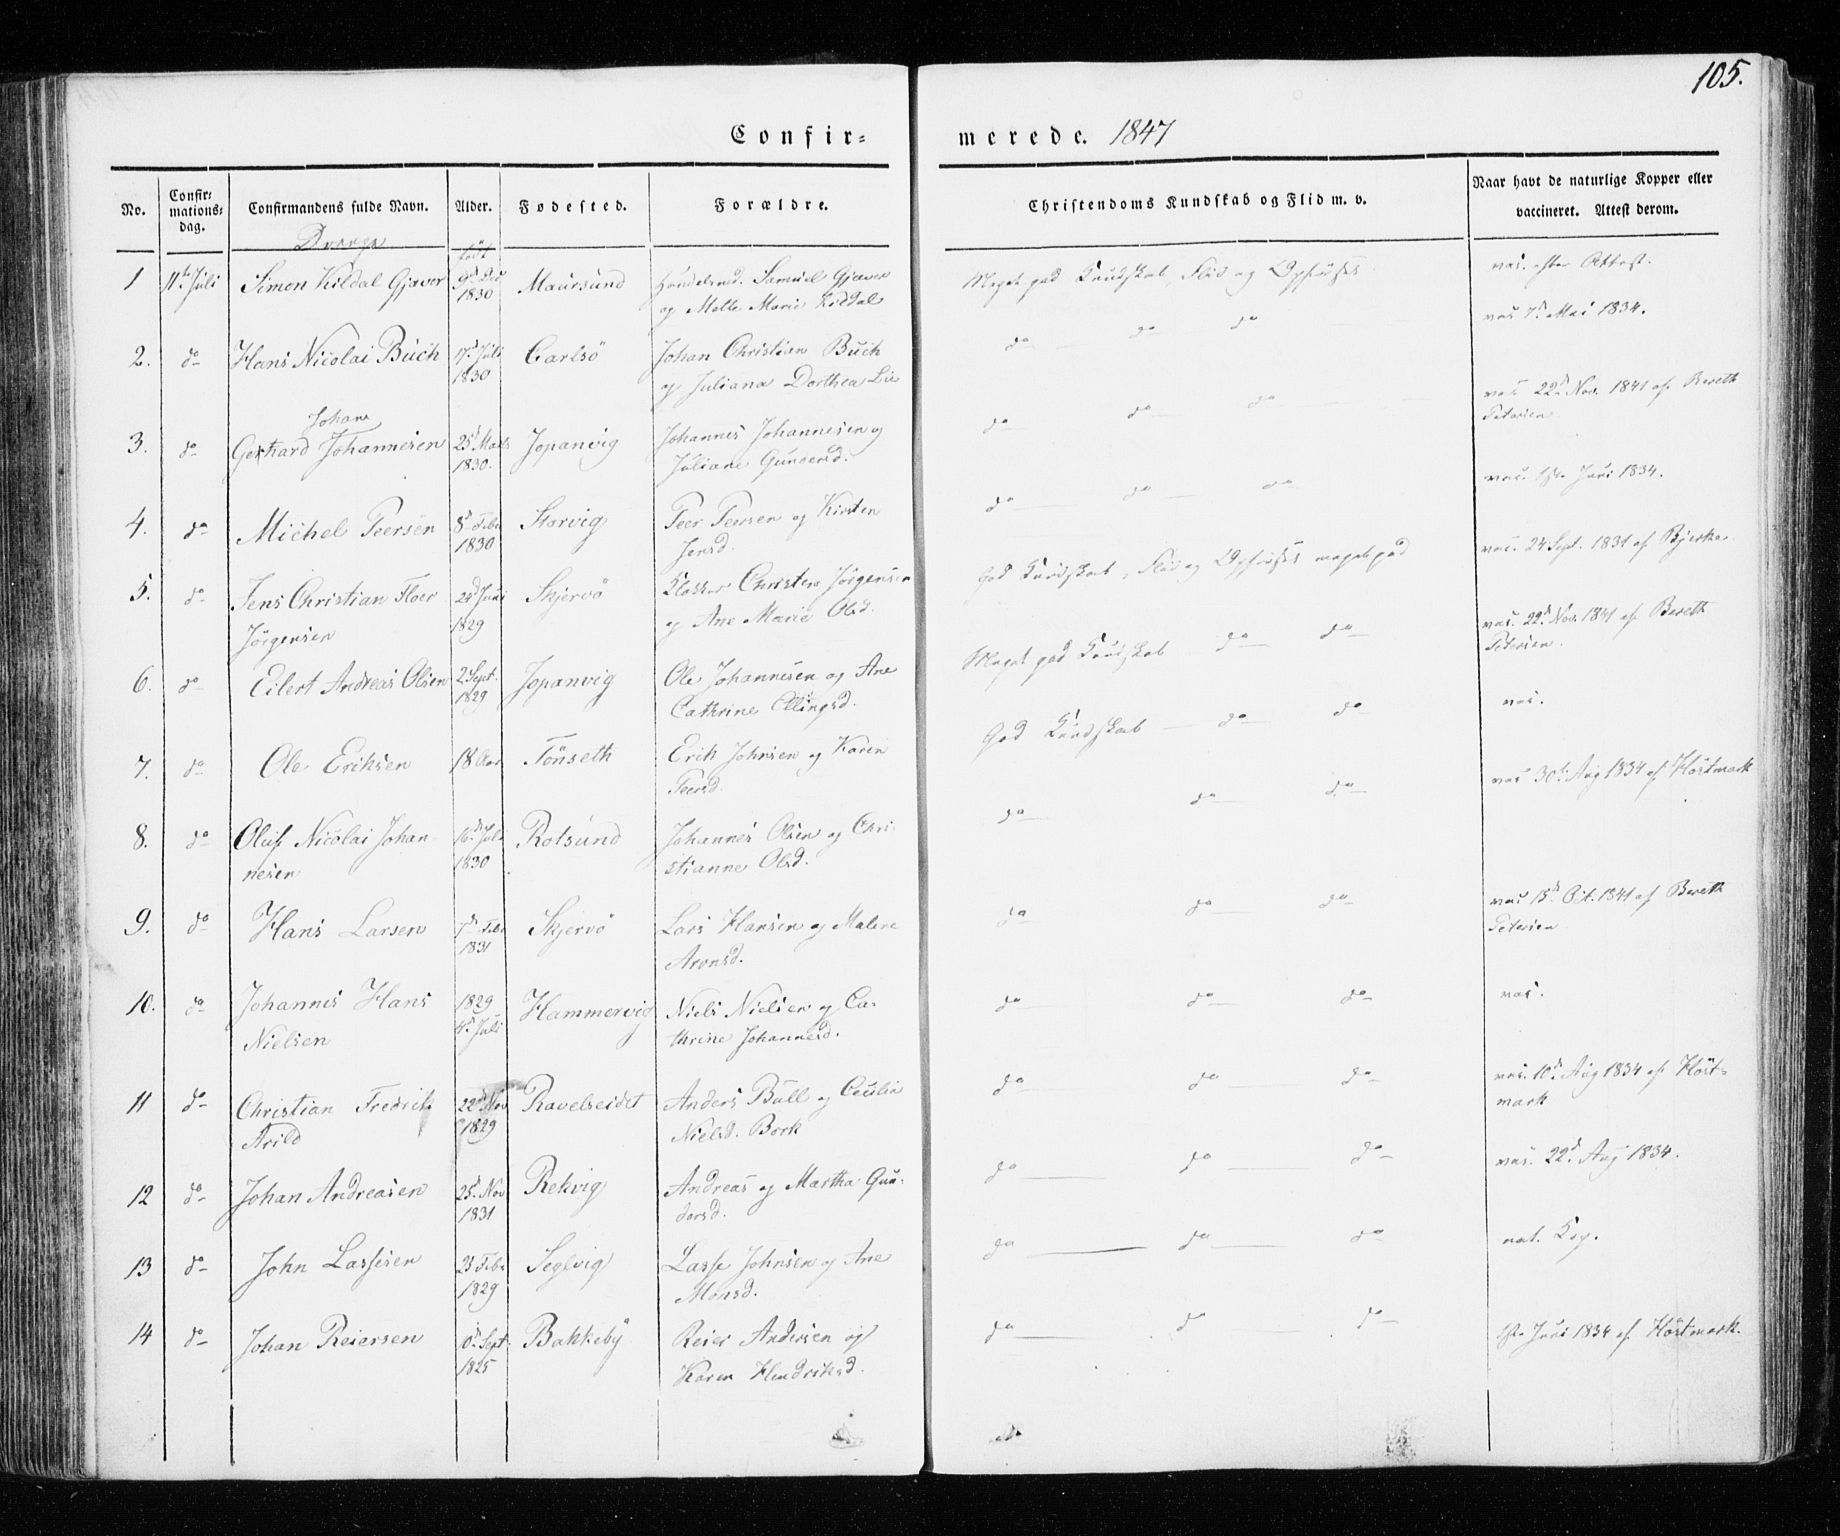 105.
Confir= merede. 1847
No. Confir= mations= dag. Confirmandens fulde Navn. Alder. Fødested. Forældre. Christendoms Kundskab og Flid m. v. Naar havt de naturlige Kopper eller vaccineret. Attest derom.
Drenge født
1 11te Juli Simon Kildal Gjæver 9d Dec Maursund Handelsmd. Samuel Gjæver Meget god Kundskab, Flid og Opførsel vac. efter Attest.
1830 og Mette Marie Kildal
2. do Hans Nicolai Buch 17d Juli Carlsö Johan Christian Buch do do do vac 7d Mai 1834.
1830 og Juliana Dorthea Lie
Johan
3. do Gerhard Johannesen 25d Marts Jopanvig Johannes Johannesen og do do do vac 22d Nov. 1841 af Bereth
1830. Juliane Gunders d. Petersen
4. do Michel Peersen 8d Feb Storvig Peer Peersen og Kirsten do do do vac. 1ste Juni 1834.
1830 Jensd.
5. do Jens Christian Floer 24d Juni Skjervö Klokker Christen Jörgensen God Kundskab, Flid og Opførsel meget god vac. 24 Sept. 1831 af Bjerke
Jörgensen 1829 og Ane Marie Olsd.
6. do Eilert Andreas Olsen 2 Sept. Jopanvig Ole Johannesen og Ane Meget god Kundskab do do vac. 22d Nov. 1841 af Bereth
1829 Cathrine Ellingsd. Petersen.
7. do Ole Eriksen 18 Aar Tönseth Erik Johnsen og Karen God Kundskab do do vac.
Peersd.
8. do Oluf Nicolai Johan- 16d Juli Rotsund Johannes Olsen og Chri- do do do vac 30te Aug 1834 af Höstmark
nesen 1830 stianne Olsd.
9. do Hans Larsen 7d Feb Skjervö Lars Hansen og Malene do do do vac 15d Oct. 1841 af Bereth
1831 Aronsd. Petersen
10. do Johannes Hans 1829 Hammervig Niels Nielsen og Ca- do do do vac.
Nielsen 4d Juli thrine Johannesd.
11 do Christian Fredrik 22d Nov Ravelseidet Anders Bull og Cecilia do do do vac. 10d Aug 1834 af Höst-
Arild 1829 Nielsd. Bork mark
12 do Johan Andreasen 25d Nov Rekvig Andreas og Martha Gun- do do do vac. 22d Aug 1834.
1831 dersd.
13 do John Lassesen 23 Feb Seglvig Lasse Johnsen og Ane do do do nat. Kop.
1829 Monsd.
14 do Johan Reiersen Sept. Bakkeby Reier Andersen og do do do 1ste Juni 1834 af Höstmark.
1825 Karen Hendriksd.